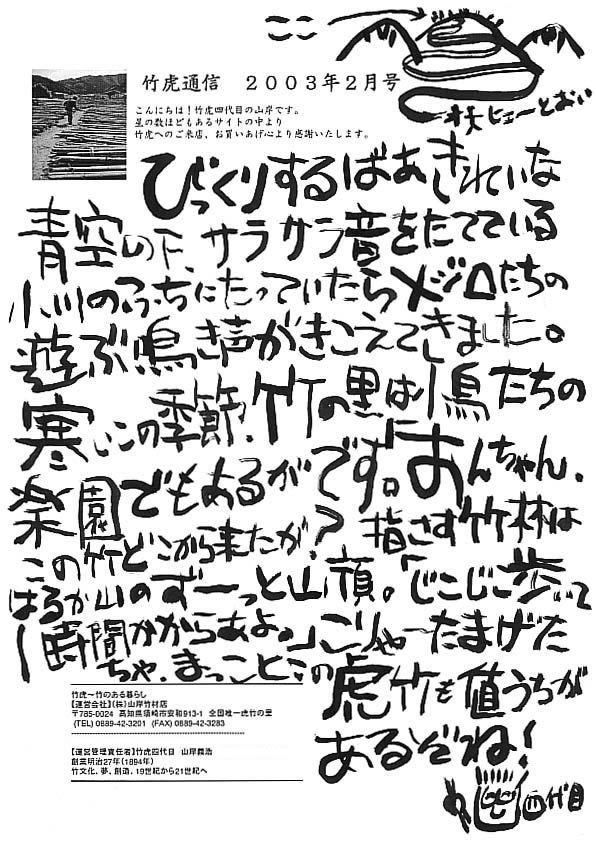 ここ
竹虎通信 2003年2月号
こんにちは!竹虎四代目の山岸です。
星の数ほどもあるサイトの中より
竹虎へのご来店、お買いあげ心より感謝いたします。
びっくりするばあきれいな
青空の下、サラサラ音をたてている
小川のふちにたっていたらメジロたちの
遊ぶ鳴き声がきこえてきました。
寒いこの季節、竹の里は小鳥たちの
楽園でもあるがです。「おんちゃん、
この竹どこから来たが?指さす竹林は
はるか山のずーっと山頂。「じこじこ歩いて
一時間かからあよ。」こりゃーたまげた
ちや、まっことここの虎竹も値うちが
あるぞね!
四代目
竹虎~竹のある暮らし
【運営会社】(株)山岸竹材店
〒785-0024 高知県須崎市安和913-1 全国唯一虎竹の里
(TEL) 0889-42-3201 (FAX) 0889-42-3283
【運営管理責任者】竹虎四代目 山岸義浩
創業明治27年(1894年)
竹文化、夢、創造、19世紀から21世紀へ